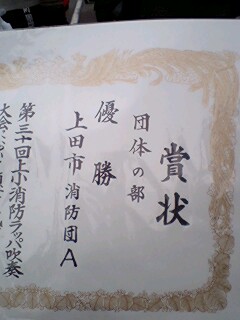 賞状
団体の部
優勝
上田市消防団A
第三十回上小消防ラッパ吹奏
大会において